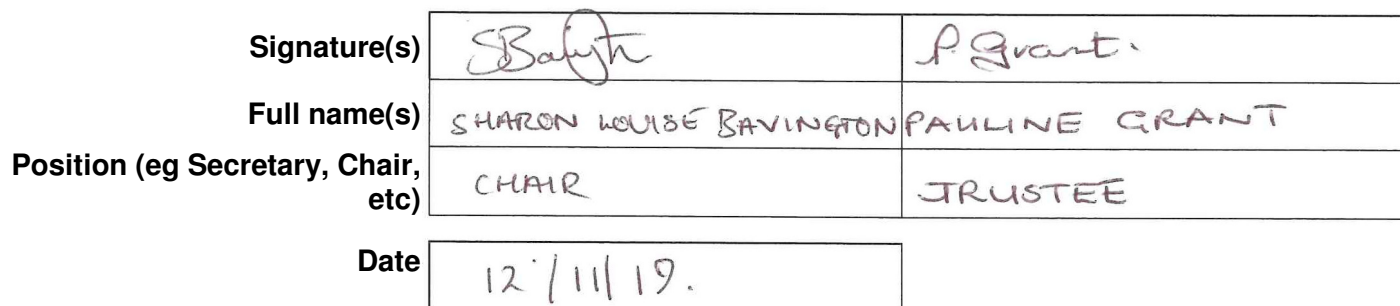 Signature(s) SBavgtn P. Grant.
Full name(s) SHARON LOUISE BAVINGTON PAULINE GRANT
Position (eg Secretary, Chair,
etc) CHAIR TRUSTEE
Date 12/11/19.